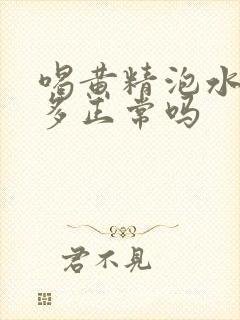 喝黄精泡水
多正常吗
君不见